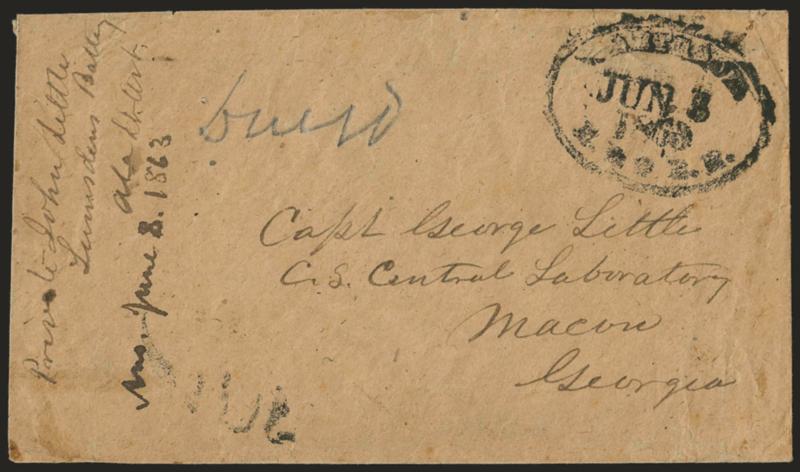 Private John Little
Lumsdens Batty
Ala Lt. Art.
Ans. June 8. 1863
Due 10
JUN. 3
Capt George Little
C.S. Central Laboratory
Macon
Georgia